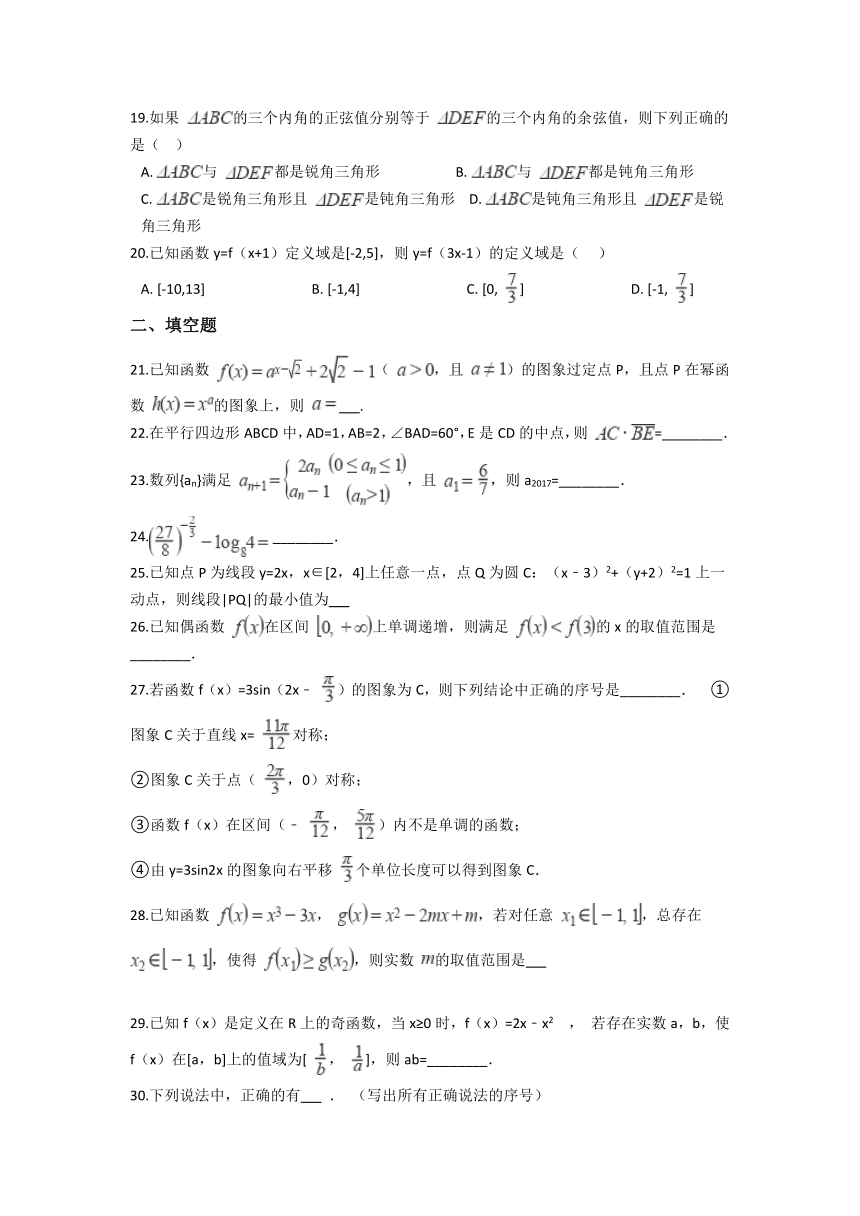 19.如果 ΔABC的三个内角的正弦值分别等于 ΔDEF的三个内角的余弦值，则下列正确的
是（ ）
A. ΔABC与 ΔDEF都是锐角三角形 B. ΔABC与 ΔDEF都是钝角三角形
C. ΔABC是锐角三角形且 ΔDEF是钝角三角形 D. ΔABC是钝角三角形且 ΔDEF是锐
角三角形
20.已知函数 y=f（x+1）定义域是[-2,5]，则 y=f（3x-1）的定义域是（ ）
A. [-10,13] B. [-1,4] C. [0, 7/3] D. [-1, 7/3]
二、填空题
21.已知函数 f(x)=a^{x-√2}+2√2-1（ a>0，且 a≠1）的图象过定点 P，且点 P 在幂函
数 h(x)=x^a的图象上，则 a=___.
22.在平行四边形 ABCD 中，AD=1，AB=2，∠BAD=60°，E 是 CD 的中点，则 AC·BE=________．
23.数列{aₙ}满足 a_{n+1}={2aₙ (0≤aₙ≤1) aₙ-1 (aₙ>1)，且 a₁=6/7，则 a₂₀₁₇=________．
24.(27/8)^{-2/3}-log₈4=________．
25.已知点 P 为线段 y=2x，x∈[2，4]上任意一点，点 Q 为圆 C：（x﹣3）²+（y+2）²=1 上一
动点，则线段|PQ|的最小值为___
26.已知偶函数 f(x)在区间 [0, +∞)上单调递增，则满足 f(x)<f(3)的 x 的取值范围是
________．
27.若函数 f（x）=3sin（2x﹣ π/3）的图象为 C，则下列结论中正确的序号是________． ①
图象 C 关于直线 x= 11π/12 对称；
②图象 C 关于点（ 2π/3，0）对称；
③函数 f（x）在区间（﹣ π/12， 5π/12）内不是单调的函数；
④由 y=3sin2x 的图象向右平移 π/3 个单位长度可以得到图象 C．
28.已知函数 f(x)=x³-3x， g(x)=x²-2mx+m，若对任意 x₁∈[-1,1]，总存在
x₂∈[-1,1]，使得 f(x₁)≥g(x₂)，则实数 m的取值范围是___
29.已知 f（x）是定义在 R 上的奇函数，当 x≥0 时，f（x）=2x﹣x² ， 若存在实数 a，b，使
f（x）在[a，b]上的值域为[ 1/b， 1/a]，则 ab=________．
30.下列说法中，正确的有___ ． （写出所有正确说法的序号）